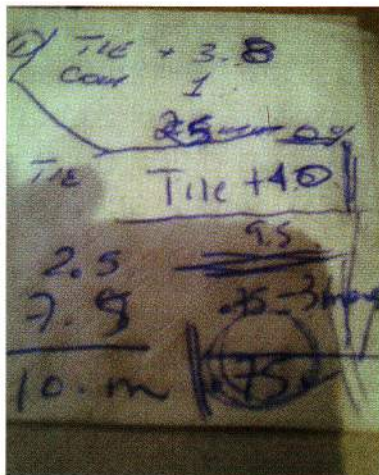 ① TILE + 3.8
COM 1
25
TILE
Tile + 4.0
9.5
2.5
7.5
10. m
.75 - 3
.75